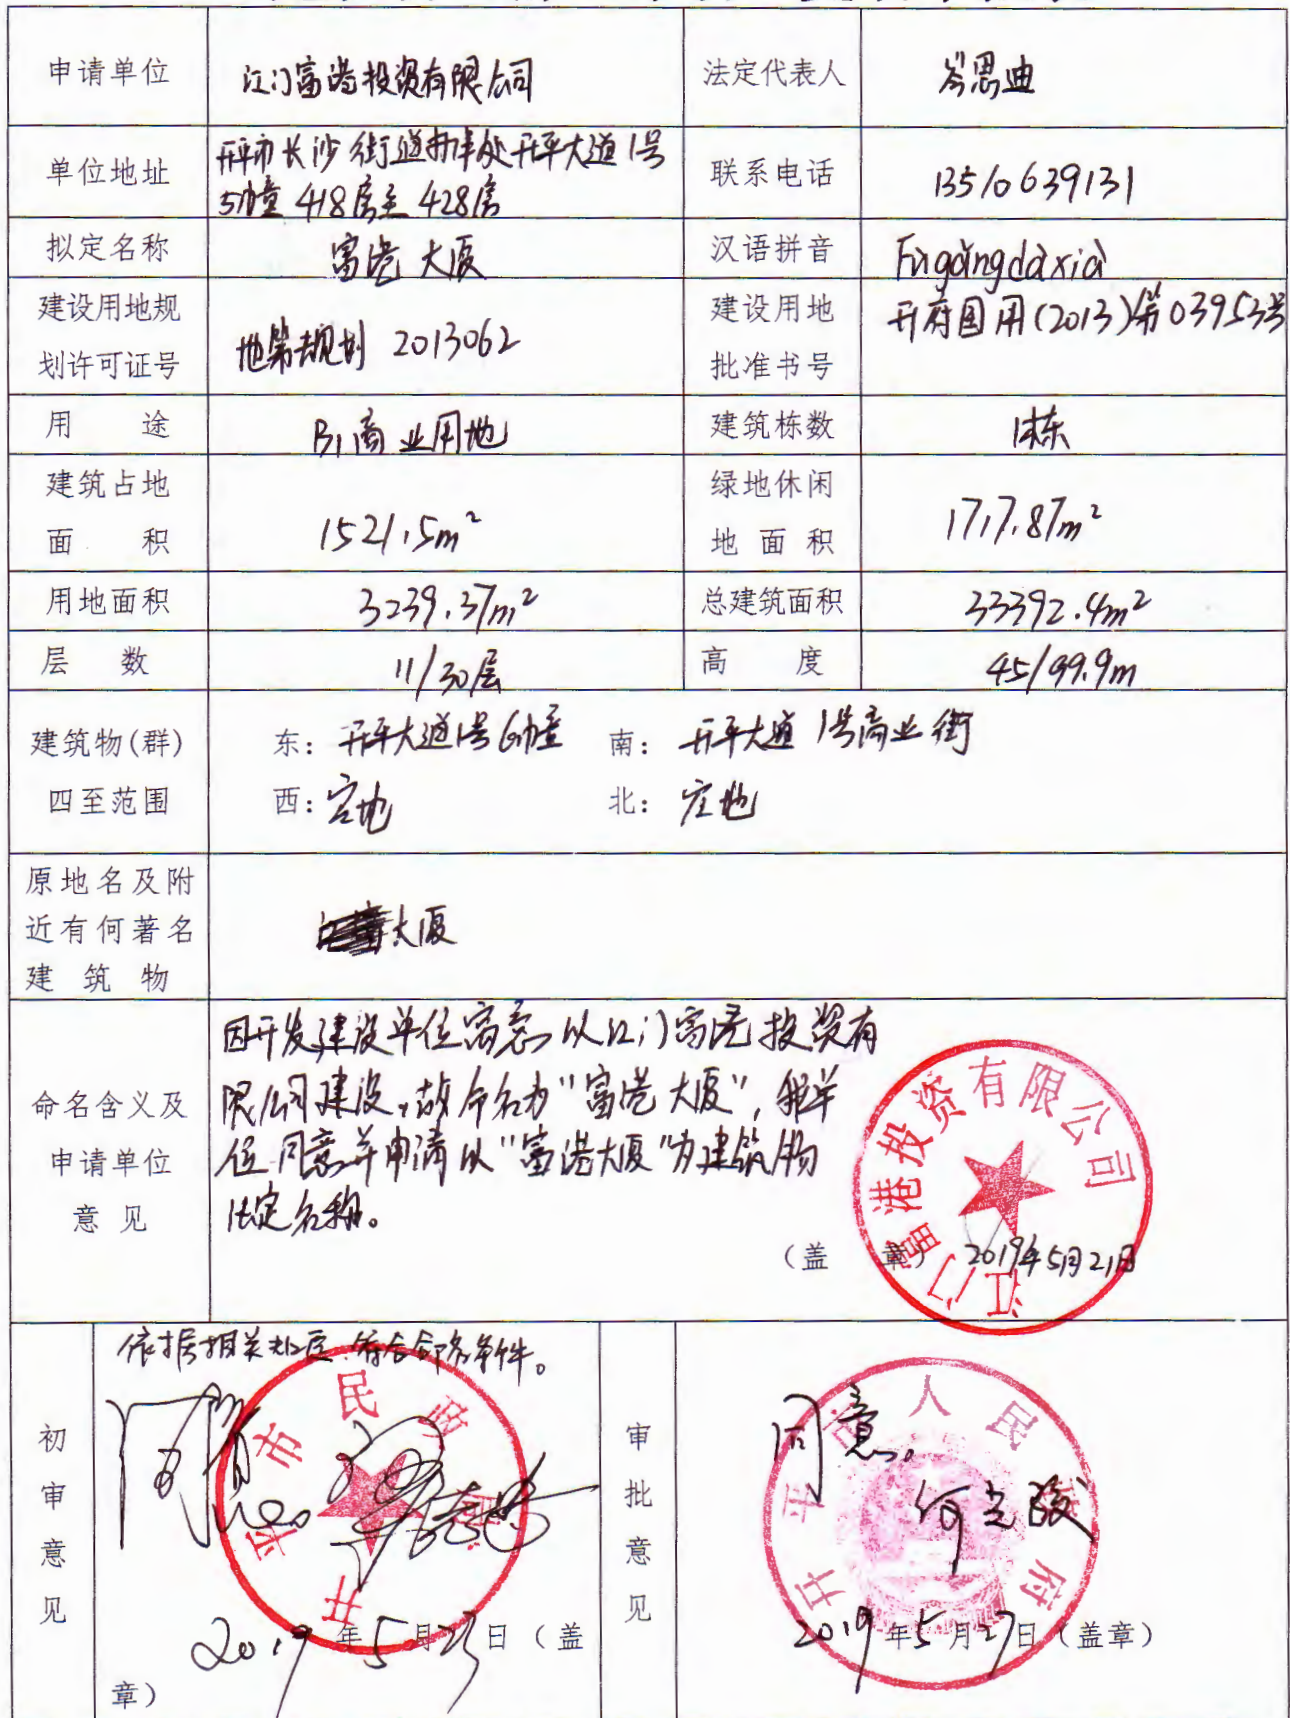 申请单位
江门富港投资有限公司
法定代表人
岑思迪
单位地址
开平市长沙街道办事处开平大道1号
5幢418房至428房
联系电话
13510639131
拟定名称
富港大厦
汉语拼音
Fùgǎngdàxià
建设用地规
划许可证号
地第规划2013062
建设用地
批准书号
开府国用(2013)第03953号
用 途
B1商业用地
建筑栋数
1栋
建筑占地
面 积
1521.5m²
绿地休闲
地面积
1717.87m²
用地面积
3239.37m²
总建筑面积
33392.4m²
层 数
11/30层
高 度
45/99.9m
建筑物(群)
四至范围
东:开平大道1号6幢 南:开平大道1号商业街
西:空地 北:空地
原地名及附
近有何著名
建筑物
大厦
命名含义及
申请单位
意见
因开发建设单位寓意以江门富港投资有
限公司建设,故命名为"富港大厦",我单
位同意并申请以"富港大厦"为建筑物
法定名称。
江门富港投资有限公司
(盖 章) 2019年5月21日
初审意见
依据相关规定,符合命名条件。
同意。
开平市民政局
2019年5月23日(盖
章)
审批意见
同意。
开平市人民政府
2019年5月27日(盖章)